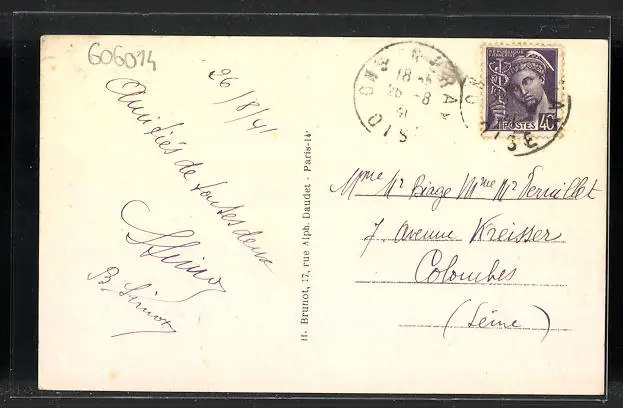 606014
26/8/41
Amitiés de toutes deux
B. Simon
H. Brunot, 17, rue Alph. Daudet - Paris-14e
18
26 -8
41
OISE
RÉPUBLIQUE FRANÇAISE
POSTES 40c
Mme Mr Biage Mme Mr Vernillet
7 Avenue Kreisser
Colombes
(Seine)